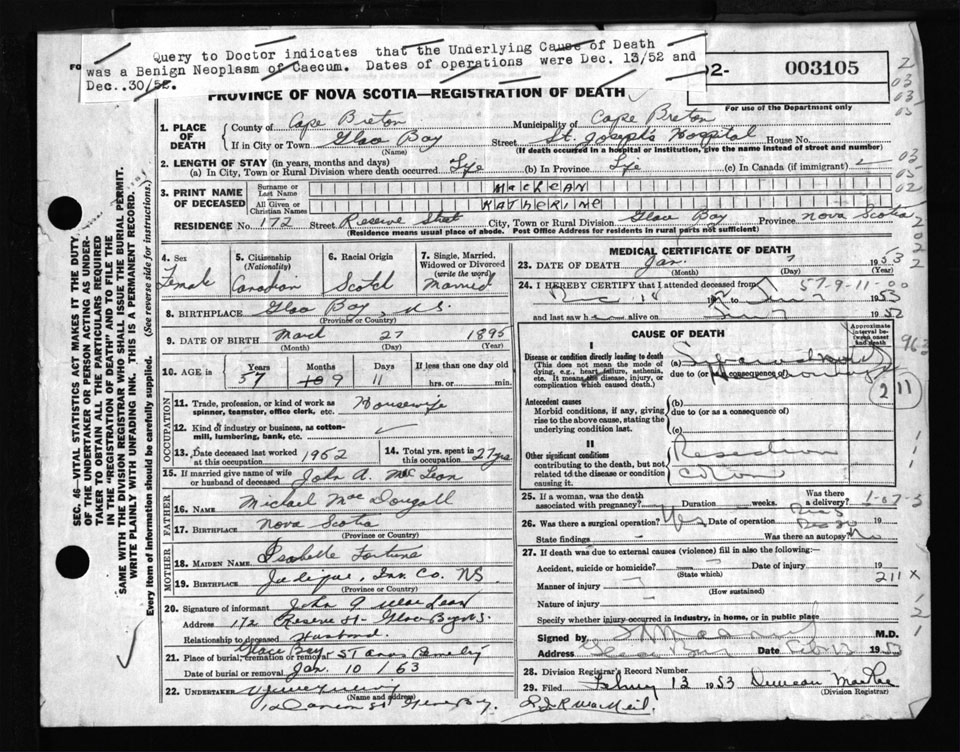 Query to Doctor indicates that the Underlying Cause of Death
was a Benign Neoplasm of Caecum. Dates of operations were Dec. 13/52 and
Dec..30/52.
003105
For use of the Department only
PROVINCE OF NOVA SCOTIA—REGISTRATION OF DEATH
1. PLACE OF DEATH
County of Cape Breton Municipality of Cape Breton
If in City or Town Glace Bay (Name) Street St. Josephs Hospital House No.
(If death occurred in a hospital or institution, give the name instead of street and number)
2. LENGTH OF STAY (in years, months and days)
(a) In City, Town or Rural Division where death occurred Life (b) In Province Life (c) In Canada (if immigrant)
3. PRINT NAME OF DECEASED
Surname or Last Name MacLEAN
All Given or Christian Names KATHERINE
RESIDENCE No. 172 Street Reserve Street City, Town or Rural Division Glace Bay Province Nova Scotia
(Residence means usual place of abode. Post Office Address for residents in rural parts not sufficient)
4. Sex Female
5. Citizenship (Nationality) Canadian
6. Racial Origin Scotch
7. Single, Married, Widowed or Divorced (write the word) Married
8. BIRTHPLACE Glace Bay, N.S. (Province or Country)
9. DATE OF BIRTH March 27 1895
(Month) (Day) (Year)
10. AGE is Years 57 Months 9 Days 11 If less than one day old hrs. or min.
OCCUPATION
11. Trade, profession, or kind of work as spinner, teamster, office clerk, etc. Housewife
12. Kind of industry or business, as cotton-mill, lumbering, bank, etc.
13. Date deceased last worked at this occupation 1952
14. Total yrs. spent in this occupation 27 yrs
15. If married give name of wife or husband of deceased John A. McLean
FATHER
16. Name Michael MacDougall
17. Birthplace Nova Scotia (Province or Country)
MOTHER
18. MAIDEN NAME Isabelle Fortune
19. BIRTHPLACE Judique, Inv. Co. NS (Province or Country)
20. Signature of informant John A MacLean
Address 172 Reserve St. Glace Bay N.S.
Relationship to deceased Husband
21. Place of burial, cremation or removal Glace Bay St Anns Cemetery
Date of burial or removal Jan. 10 / 53
22. UNDERTAKER
(Name and address)
MEDICAL CERTIFICATE OF DEATH
23. DATE OF DEATH Jan. 7 1953
(Month) (Day) (Year)
24. I HEREBY CERTIFY that I attended deceased from 57-9-11-00
and last saw h alive on
CAUSE OF DEATH
Approximate interval between onset and death
I
Disease or condition directly leading to death (This does not mean the mode of dying, e.g., heart failure, asthenia, etc. It means the disease, injury, or complication which caused death.)
(a)
due to (or as a consequence of)
Antecedent causes
Morbid conditions, if any, giving rise to the above cause, stating the underlying condition last.
(b)
due to (or as a consequence of)
(c)
II
Other significant conditions contributing to the death, but not related to the disease or condition causing it.
Resection
colon
25. If a woman, was the death associated with pregnancy? Duration weeks. Was there a delivery?
26. Was there surgical operation? Yes Date of operation 19
State findings Was there an autopsy? No
27. If death was due to external causes (violence) fill in also the following:—
Accident, suicide or homicide? (State which) Date of injury 19
Manner of injury (How sustained)
Nature of injury
Specify whether injury occurred in industry, in home, or in public place
Signed by M.D.
Address Glace Bay Date 1953
28. Division Registrar's Record Number
29. Filed 12 1953 Duncan MacRae
(Division Registrar)
211
211 x
SEC. 46—VITAL STATISTICS ACT MAKES IT THE DUTY
OF THE UNDERTAKER OR PERSON ACTING AS UNDERTAKER
TO OBTAIN ALL THE PARTICULARS REQUIRED
IN THE "REGISTRATION OF DEATH" AND TO FILE THE
SAME WITH THE DIVISION REGISTRAR WHO SHALL ISSUE THE BURIAL PERMIT.
WRITE PLAINLY WITH UNFADING INK. THIS IS A PERMANENT RECORD.
Every item of information should be carefully supplied. (See reverse side for instructions.)